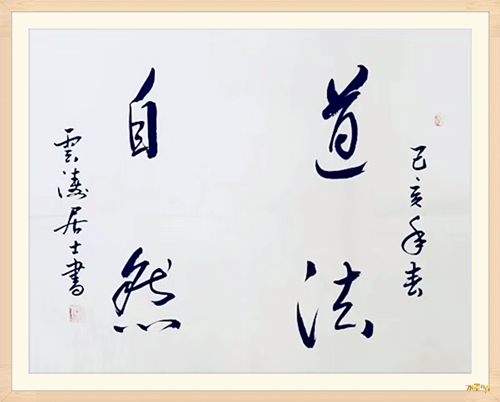 己亥年春
道法
自然
雲濤居士書